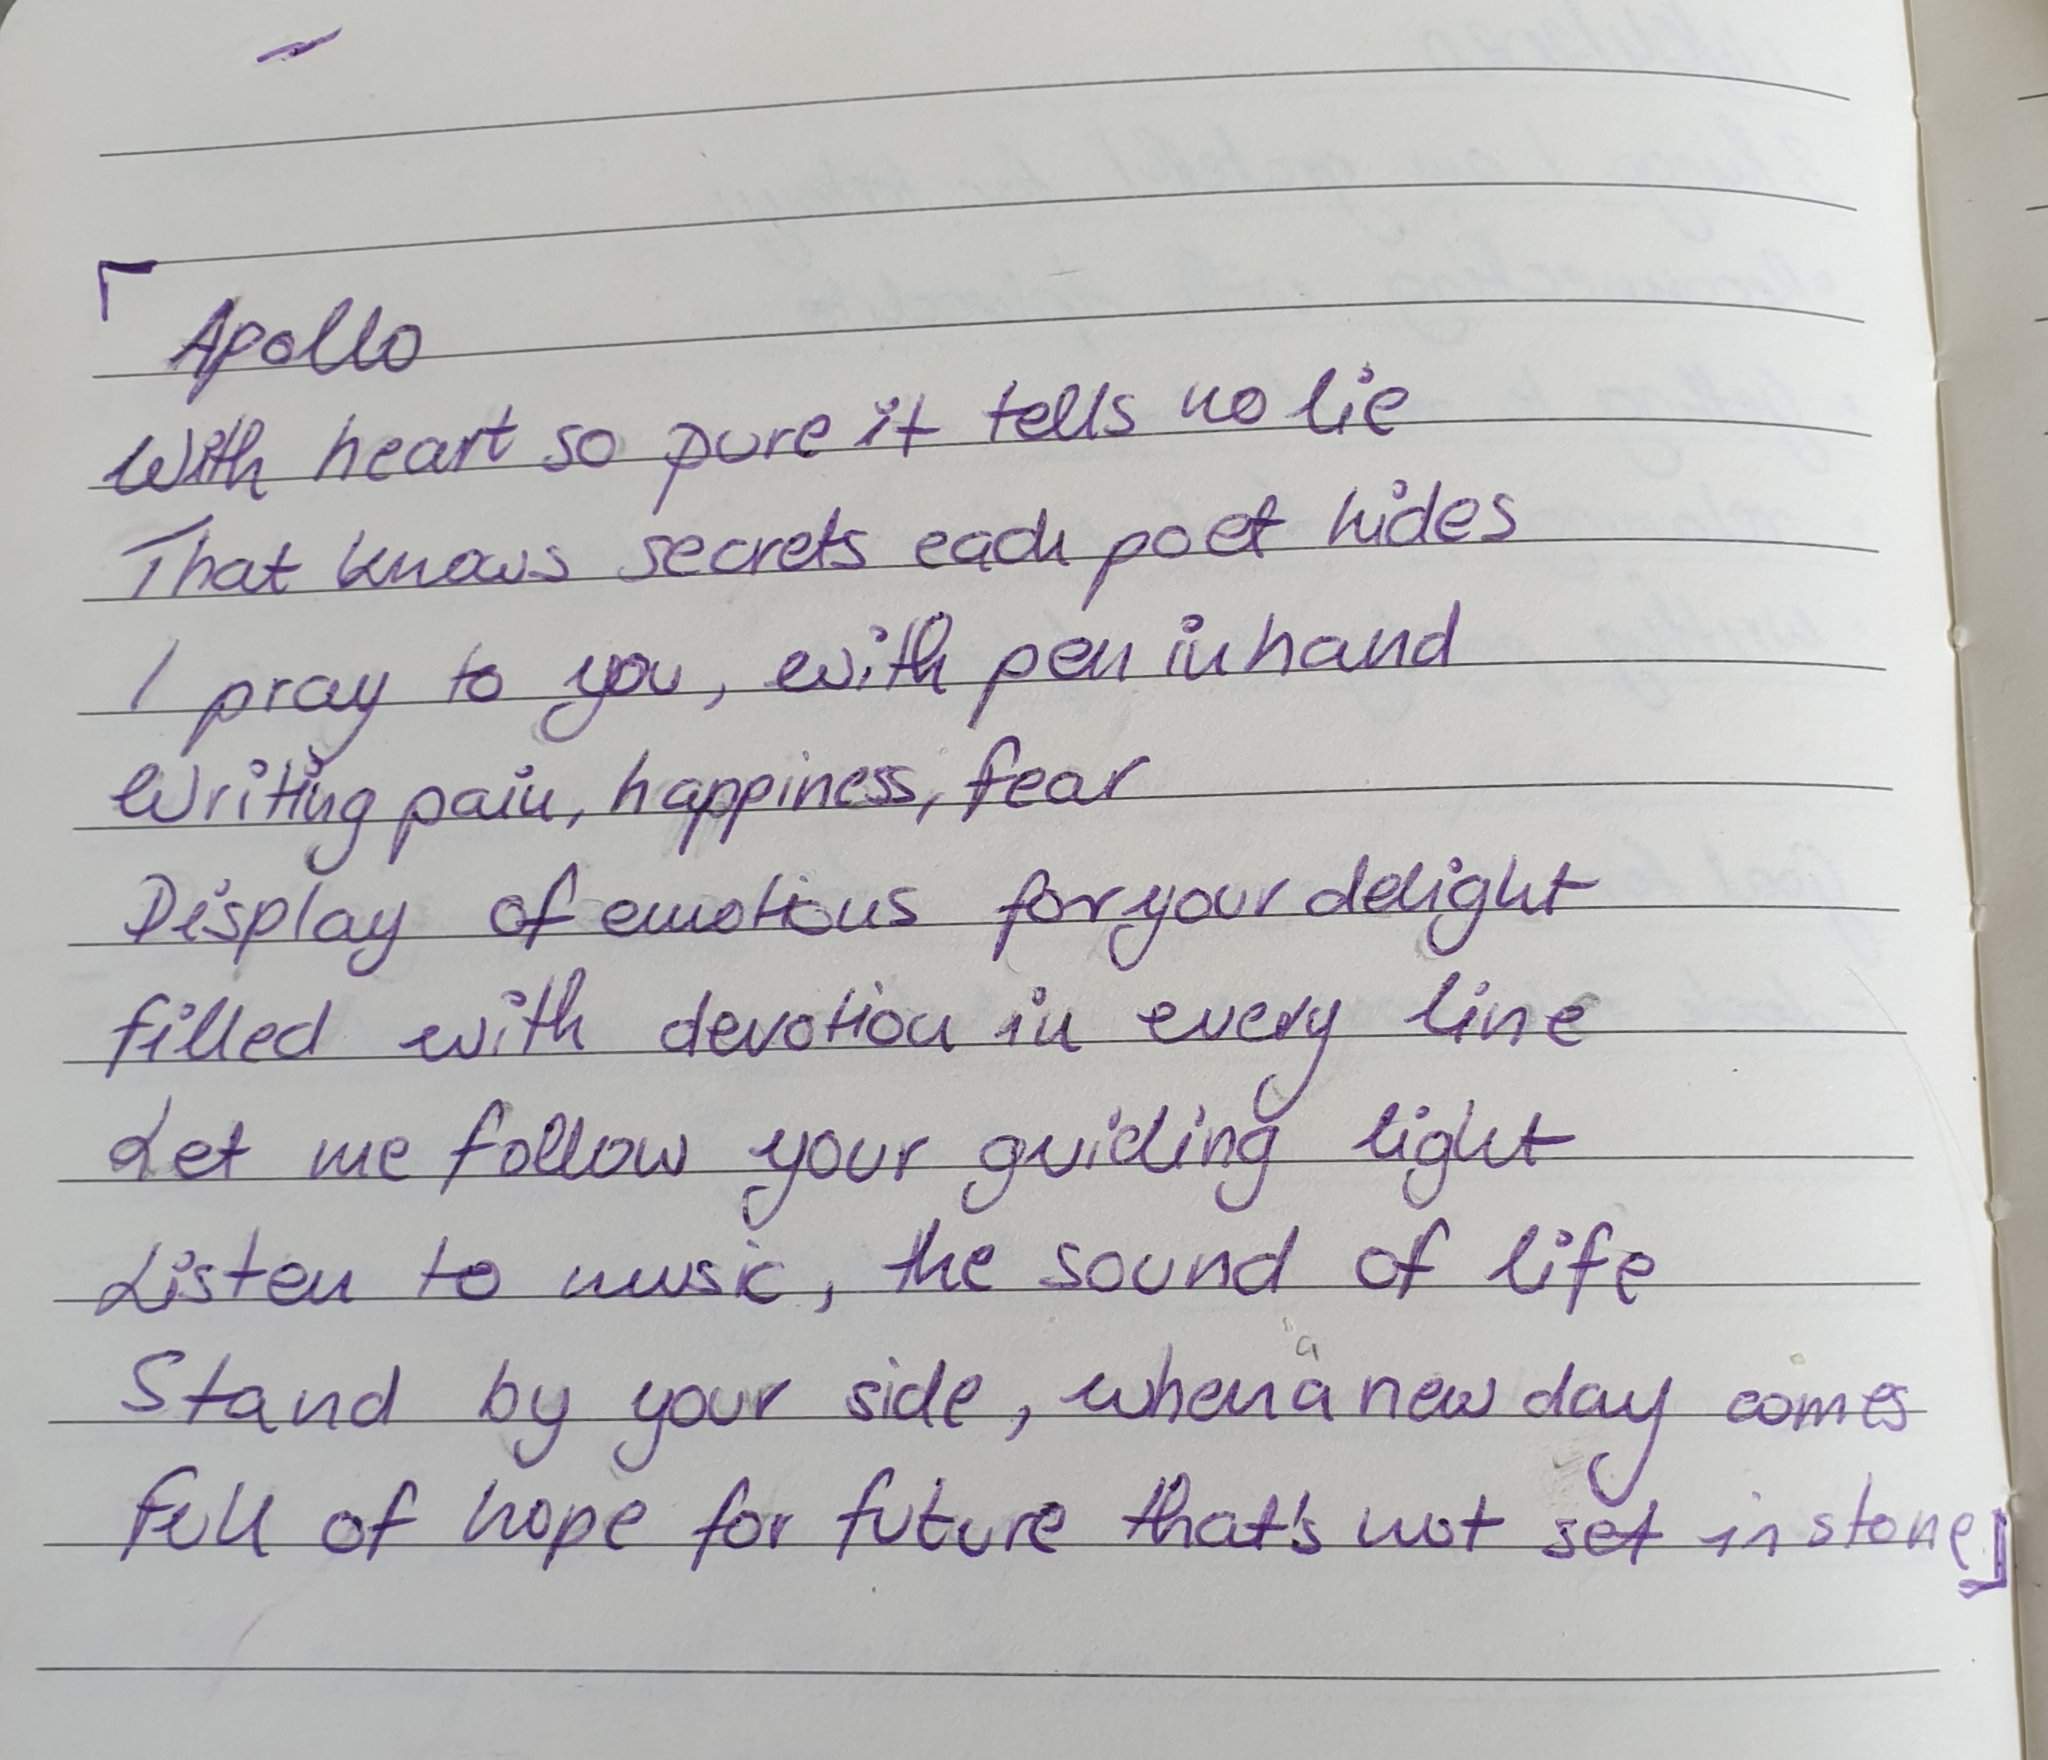 Apollo
With heart so pure it tells no lie
That knows secrets each poet hides
I pray to you, with pen in hand
Writing pain, happiness, fear
Display of emotions for your delight
filled with devotion in every line
Let me follow your guiding light
Listen to music, the sound of life
Stand by your side, when a new day comes
full of hope for future that's not set in stone